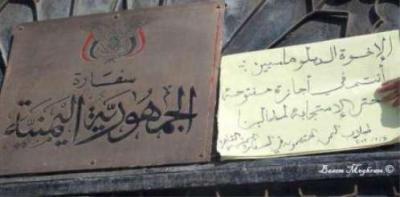 سفارة
الجمهورية اليمنية
الإخوة الدبلوماسيين:
أنتم في أجازة مفتوحة
حتى الاستجابة لمطالبنا
طلاب اليمن
Baseem Moghram ©